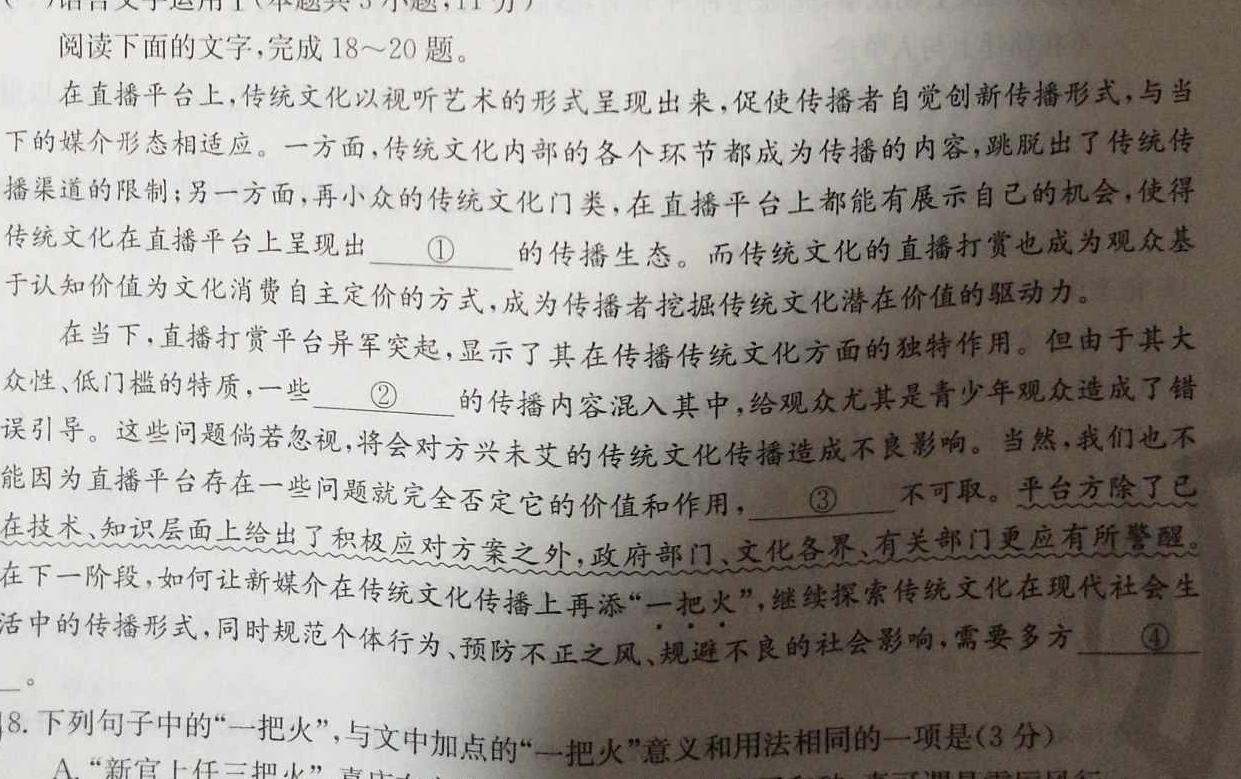 语言文字运用Ⅰ(本题共3小题,11分)
阅读下面的文字,完成18～20题。
在直播平台上,传统文化以视听艺术的形式呈现出来,促使传播者自觉创新传播形式,与当
下的媒介形态相适应。一方面,传统文化内部的各个环节都成为传播的内容,跳脱出了传统传
播渠道的限制;另一方面,再小众的传统文化门类,在直播平台上都能有展示自己的机会,使得
传统文化在直播平台上呈现出 ① 的传播生态。而传统文化的直播打赏也成为观众基
于认知价值为文化消费自主定价的方式,成为传播者挖掘传统文化潜在价值的驱动力。
在当下,直播打赏平台异军突起,显示了其在传播传统文化方面的独特作用。但由于其大
众性、低门槛的特质,一些 ② 的传播内容混入其中,给观众尤其是青少年观众造成了错
误引导。这些问题倘若忽视,将会对方兴未艾的传统文化传播造成不良影响。当然,我们也不
能因为直播平台存在一些问题就完全否定它的价值和作用, ③ 不可取。平台方除了已
在技术、知识层面上给出了积极应对方案之外,政府部门、文化各界、有关部门更应有所警醒。
在下一阶段,如何让新媒介在传统文化传播上再添“一把火”,继续探索传统文化在现代社会生
活中的传播形式,同时规范个体行为、预防不正之风、规避不良的社会影响,需要多方 ④
。
18.下列句子中的“一把火”,与文中加点的“一把火”意义和用法相同的一项是(3分)
A.“新官上任三把火”